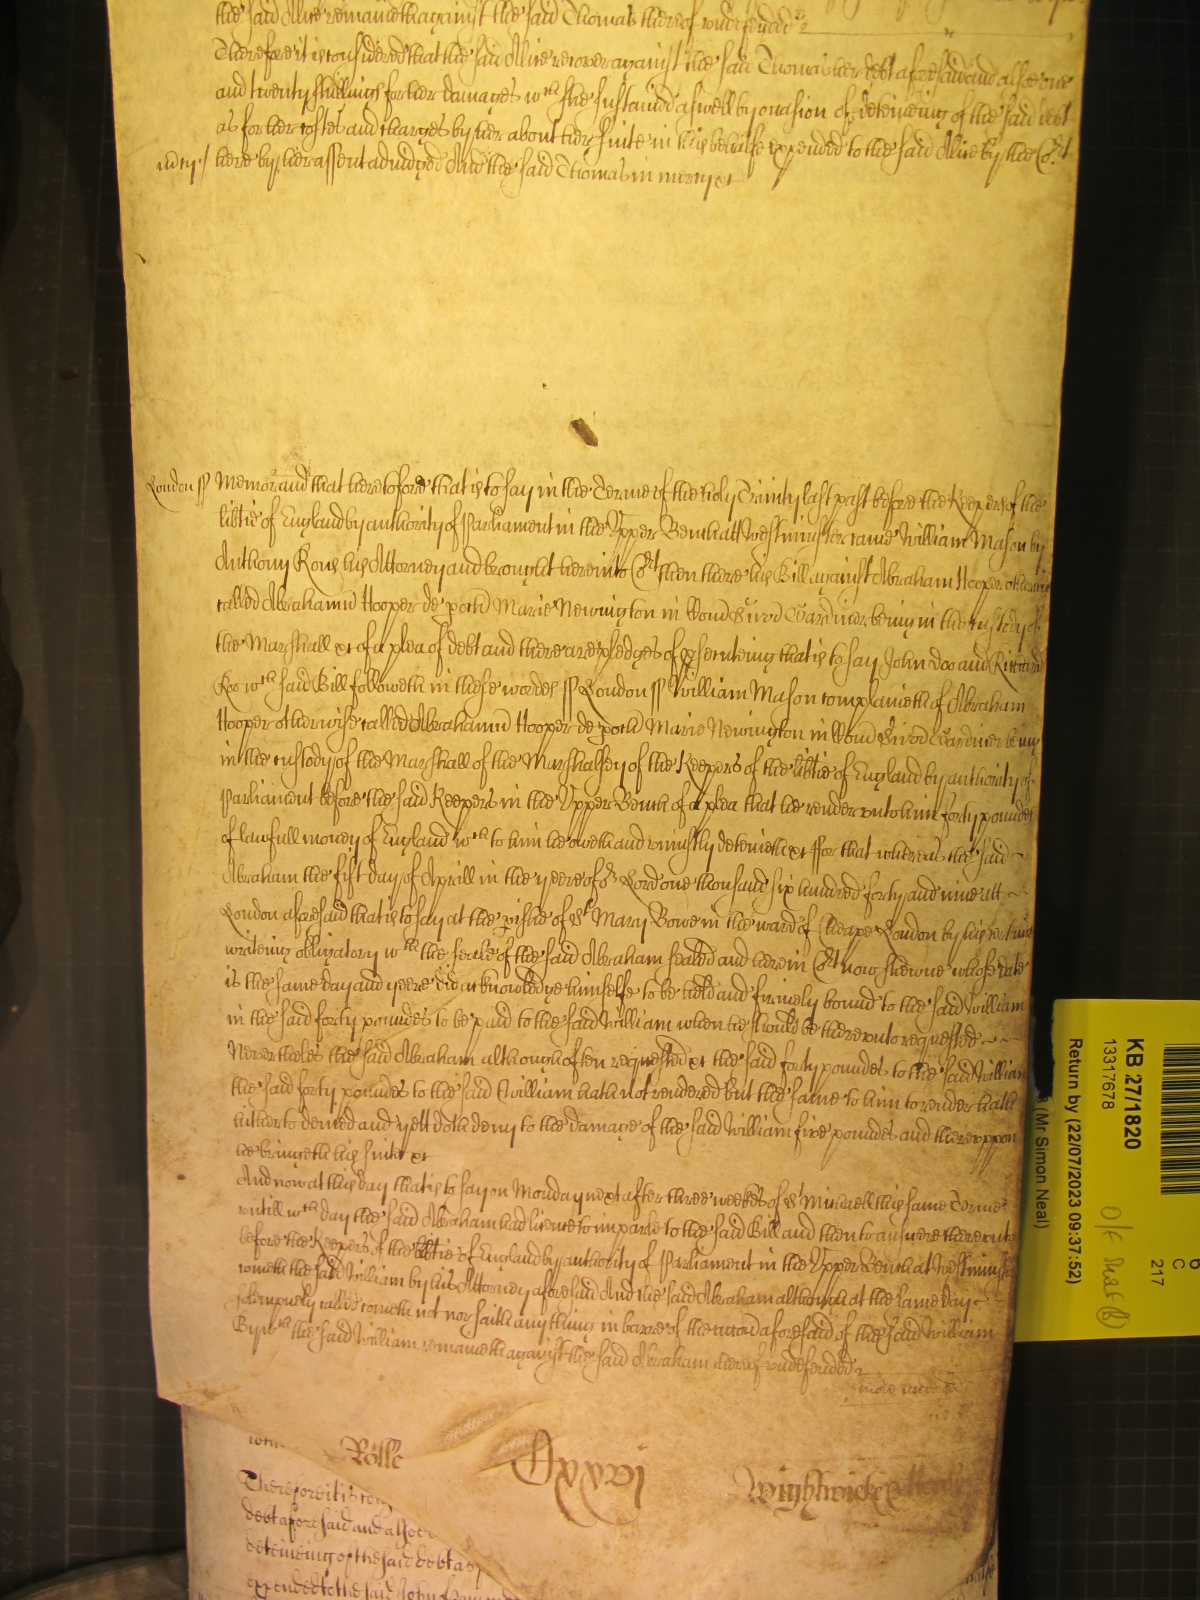 the said Alice remaineth against the said Thomas thereof undefended
Therefore it is considered that the said Alice recover against the said Thomas her debt aforesaid and alsoe one
and twenty shillings for her damages wch she sustained aswell by occasion of deteineing of the said debt
as for her costes and charges by her about her suite in this behalfe expended to the said Alice by the Cort
here by her assent adiudged And the said Thomas in mercy &c
mercy
London ss Memorand that heretofore that is to say in the Terme of the holy Trinity last past before the Keepers of the
libtie of England by authority of Parliament in the Upper Bench att Westminster came William Mason by
Anthony Rous his Attorney and brought here into Cort then there his Bill against Abraham Hooper otherwise
called Abrahamu Hooper de poch Marie Newington in Com Surr Gardiner being in the custody of
the Marshall &c of a plea of debt and there are pledges of psecuteing that is to say John Doo and Richard
Roo wch said Bill followeth in these wordes ss London ss William Mason complaineth of Abraham
Hooper otherwise called Abrahamu Hooper de poch Marie Newington in Com Surr Gardiner being
in the custody of the Marshall of the Marshalsey of the Keepers of the libtie of England by authority of
Parliament before the said Keepers in the Upper Bench of a plea that he render unto him forty poundes
of lawfull money of England wch to him he oweth and uniustly deteineth &c For that whereas the said
Abraham the first day of Aprill in the yeere of or Lord one thousand six hundred forty and nine att
London aforesaid that is to say at the pishe of St Mary Bowe in the ward of Cheape London by his certaine
writeing obligatory wth the seale of the said Abraham sealed and here in Cort now shewne whose date
is the same day and yeere did acknowledge himselfe to be held and firmely bound to the said William
in the said forty poundes to be paid to the said William when he should be thereunto requested
Nevertheles the said Abraham although often requested &c the said forty poundes to the said William
the said forty poundes to the said William hath not rendered but the same to him to render hath
hitherto denied and yett doth deny to the damage of the said William five poundes and thereuppon
he bringeth his suite &c
And now at this day that is to say on Monday next after three weekes of St Michaell this same Terme
untill wch day the said Abraham had licence to imparle to the said Bill and then to answere thereunto
before the Keepers of the libtie of England by authority of Parliament in the Upper Bench at Westminster
cometh the said William by his Attorney aforesaid And the said Abraham although at the same day
solempnely called cometh not nor saith any thing in barre of the accon aforesaid of the said William
By wch the said William remaineth against the said Abraham thereof undefended
Rolle Cxxvi Wightwicke
Therefore it is con
debt aforesaid and alsoe
deteineing of the said debt as
expended to the said John
KB 27/1820
13317678
Return by (22/07/2023 09:37:52)
(Mr Simon Neal)
C
217